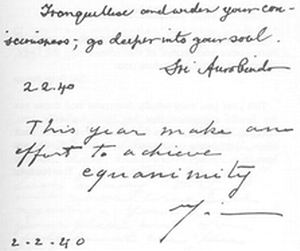 Tranquillise and widen your con-
sciousness; go deeper into your soul.
Sri Aurobindo
2 2.40
This year make an
effort to achieve
equanimity
2-2.40